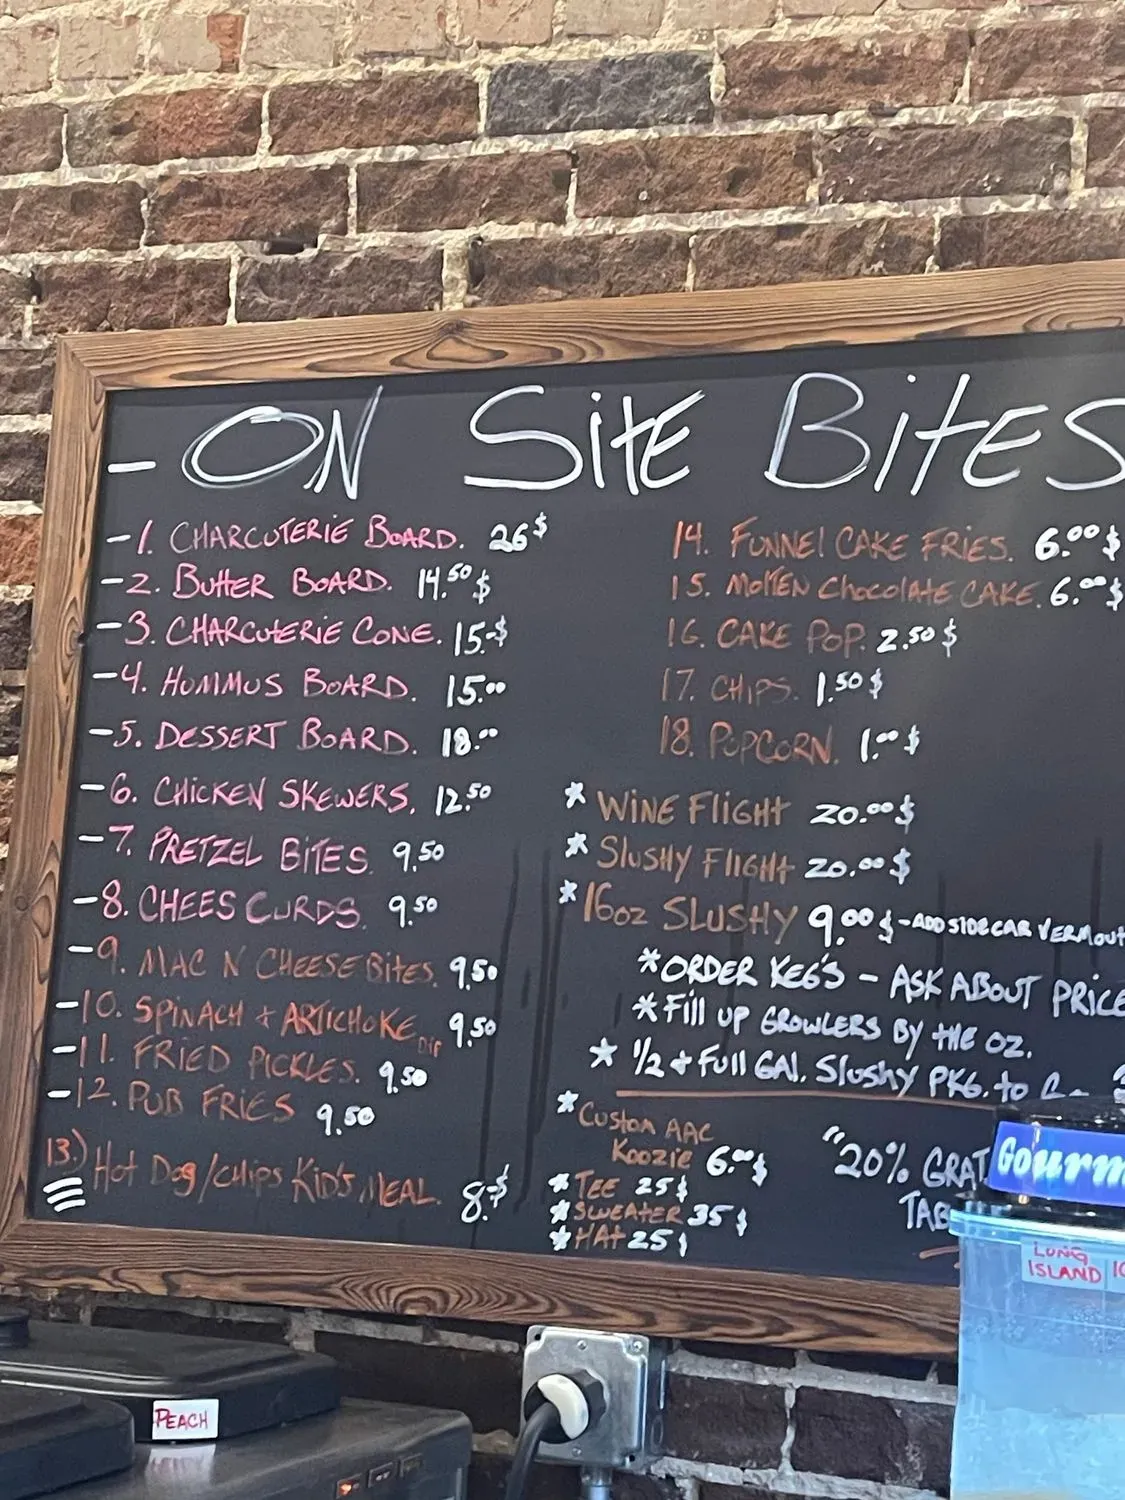 - ON SitE BitES
-1. CHARCUTERIE BOARD. 26$
-2. Butter BOARD. 14.50 $
-3. CHARCUTERIE CONE. 15.-$
-4. HUMMUS BOARD. 15.00
-5. DESSERT BOARD. 18.00
-6. CHICKEN SKEWERS. 12.50
-7. PRETZEL BITES. 9.50
-8. CHEES CURDS. 9.50
-9. MAC N CHEESE Bites. 9.50
-10. SPINACH + ARTICHOKE DIP 9.50
-11. FRIED PICKLES. 9.50
-12. PUB FRIES 9.50
13.) Hot Dog/chips Kid's MEAL. 8.-$
14. FUNNEl CAKE FRIES. 6.00 $
15. MOlTEN Chocolate CAKE. 6.00 $
16. CAKE POP. 2.50 $
17. CHIPS. 1.50 $
18. POPCORN. 1.00 $
* WINE Flight 20.00 $
* Slushy Flight 20.00 $
* 16oz SLUSHY 9.00 $ -ADD SIDECAR VERMOUT
* ORDER KEG'S - ASK ABOUT PRICE
* Fill UP GROWLERS BY tHE OZ.
* 1/2 + Full GAl. Slushy PKG. to
* Custom AAC
Koozie 6.00 $
* TEE 25 $
* SWEATER 35 $
* HAt 25 $
"20% GRAT
TAB
Gourm
LONG
ISLAND
PEACH